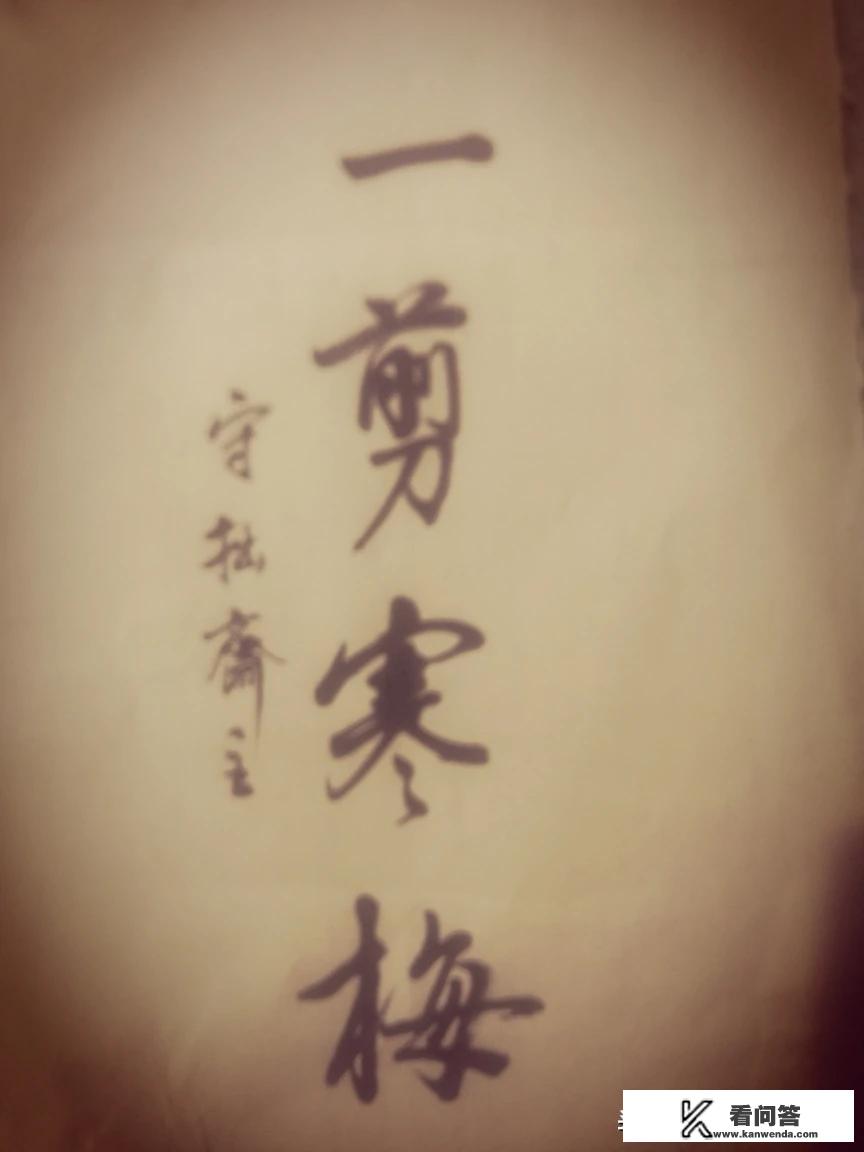 一剪寒梅
守拙斋主
看问答
www.kanwenda.com